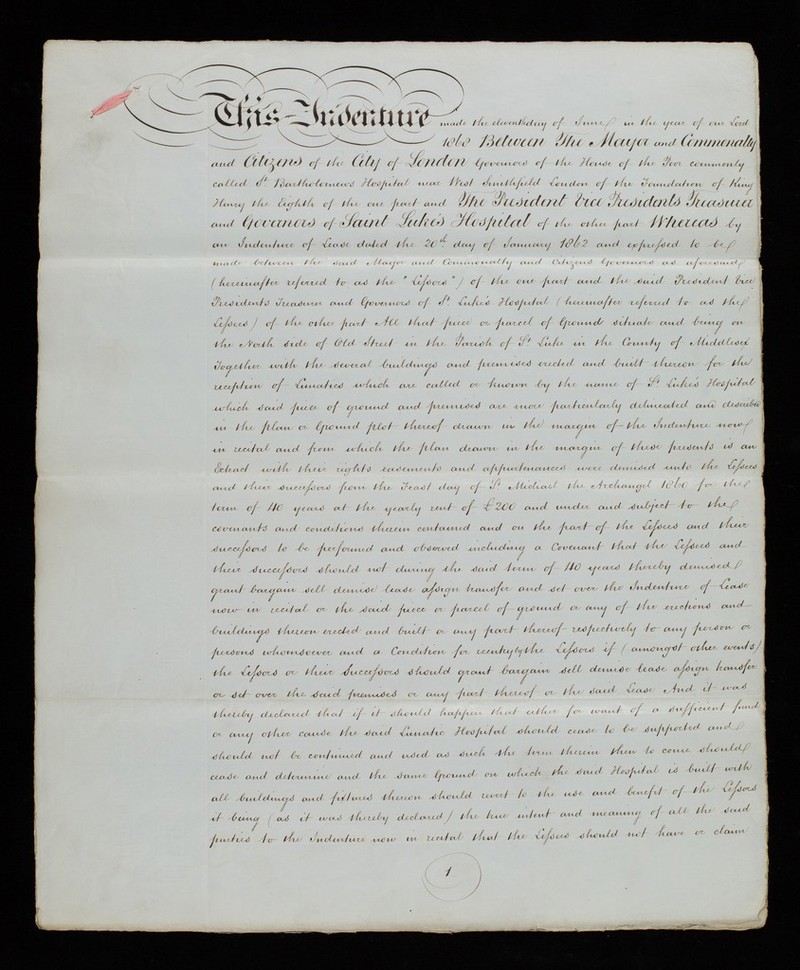 This Indenture made the eleventh day of June in the year of our Lord
186 Between The Mayor and Commonalty
and Citizens of the City of London Governors of the House of the Poor commonly
called St Bartholomews Hospital near West Smithfield London of the Foundation of King
Henry the Eighth of the one part and The President Vice Presidents Treasurer
and Governors of Saint Luke's Hospital of the other part Whereas by
an Indenture of Lease dated the 20th day of January 1862 and expressed to be
made between the said Mayor and Commonalty and Citizens Governors as aforesaid
(hereinafter referred to as the "Lessors") of the one part and the said President Vice
Presidents Treasurer and Governors of St Luke's Hospital (hereinafter referred to as the
Lessees) of the other part All that piece or parcel of Ground situate and being on
the North side of Old Street in the Parish of St Luke in the County of Middlesex
Together with the several buildings and premises erected and built thereon for the
reception of Lunatics which are called or known by the name of St Luke's Hospital
which said piece of ground and premises are more particularly delineated and described
in the plan or Ground plot thereof drawn in the margin of the Indenture now
in recital and from which the plan drawn in the margin of these presents is an
Extract with their rights easements and appurtenances were demised unto the Lessees
and their successors from the Feast day of St Michael the Archangel 1860 for the
term of 40 years at the yearly rent of £200 and under and subject to the
covenants and conditions therein contained and on the part of the Lessees and their
successors to be performed and observed including a Covenant that the Lessees and
their successors should not during the said term of 40 years thereby demised
grant bargain sell demise lease assign transfer and set over the Indenture of Lease
now in recital or the said piece or parcel of ground or any of the erections and
buildings thereon erected and built or any part thereof respectively to any person or
persons whomsoever and a Condition for reentry by the Lessors if (amongst other events)
the Lessors or their Successors should grant bargain sell demise lease assign transfer
or set over the said premises or any part thereof or the said Lease And it was
thereby declared that if it should happen that either for want of a sufficient fund
or any other cause the said Lunatic Hospital should cease to be supported and
should not be continued and used as such the term therein then to come should
cease and determine and the same Ground on which the said Hospital is built with
all buildings and fixtures thereon should revert to the use and benefit of the Lessors
it being (as it was thereby declared) the true intent and meaning of all the said
parties to the Indenture now in recital that the Lessees should not have or claim
1